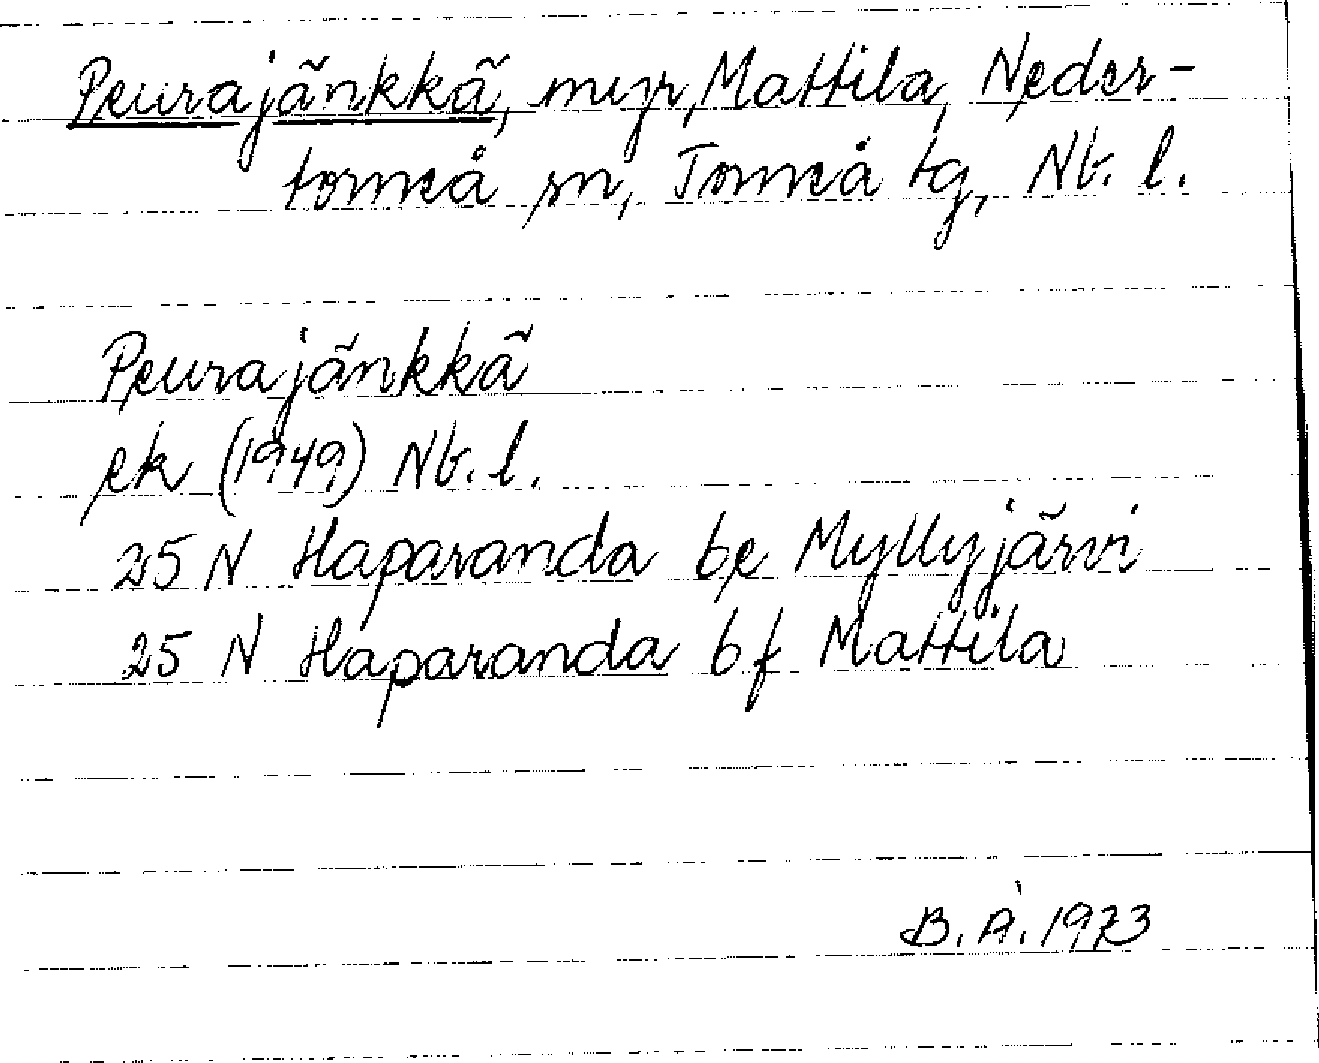 Peurajänkkä, myr, Mattila, Neder-
torneå sn, Torneå tg, Nb. l.
Peurajänkkä
ek (1949) Nb. l.
25 N Haparanda be Myllyjärvi
25 N Haparanda bf Mattila
B. Å. 1973